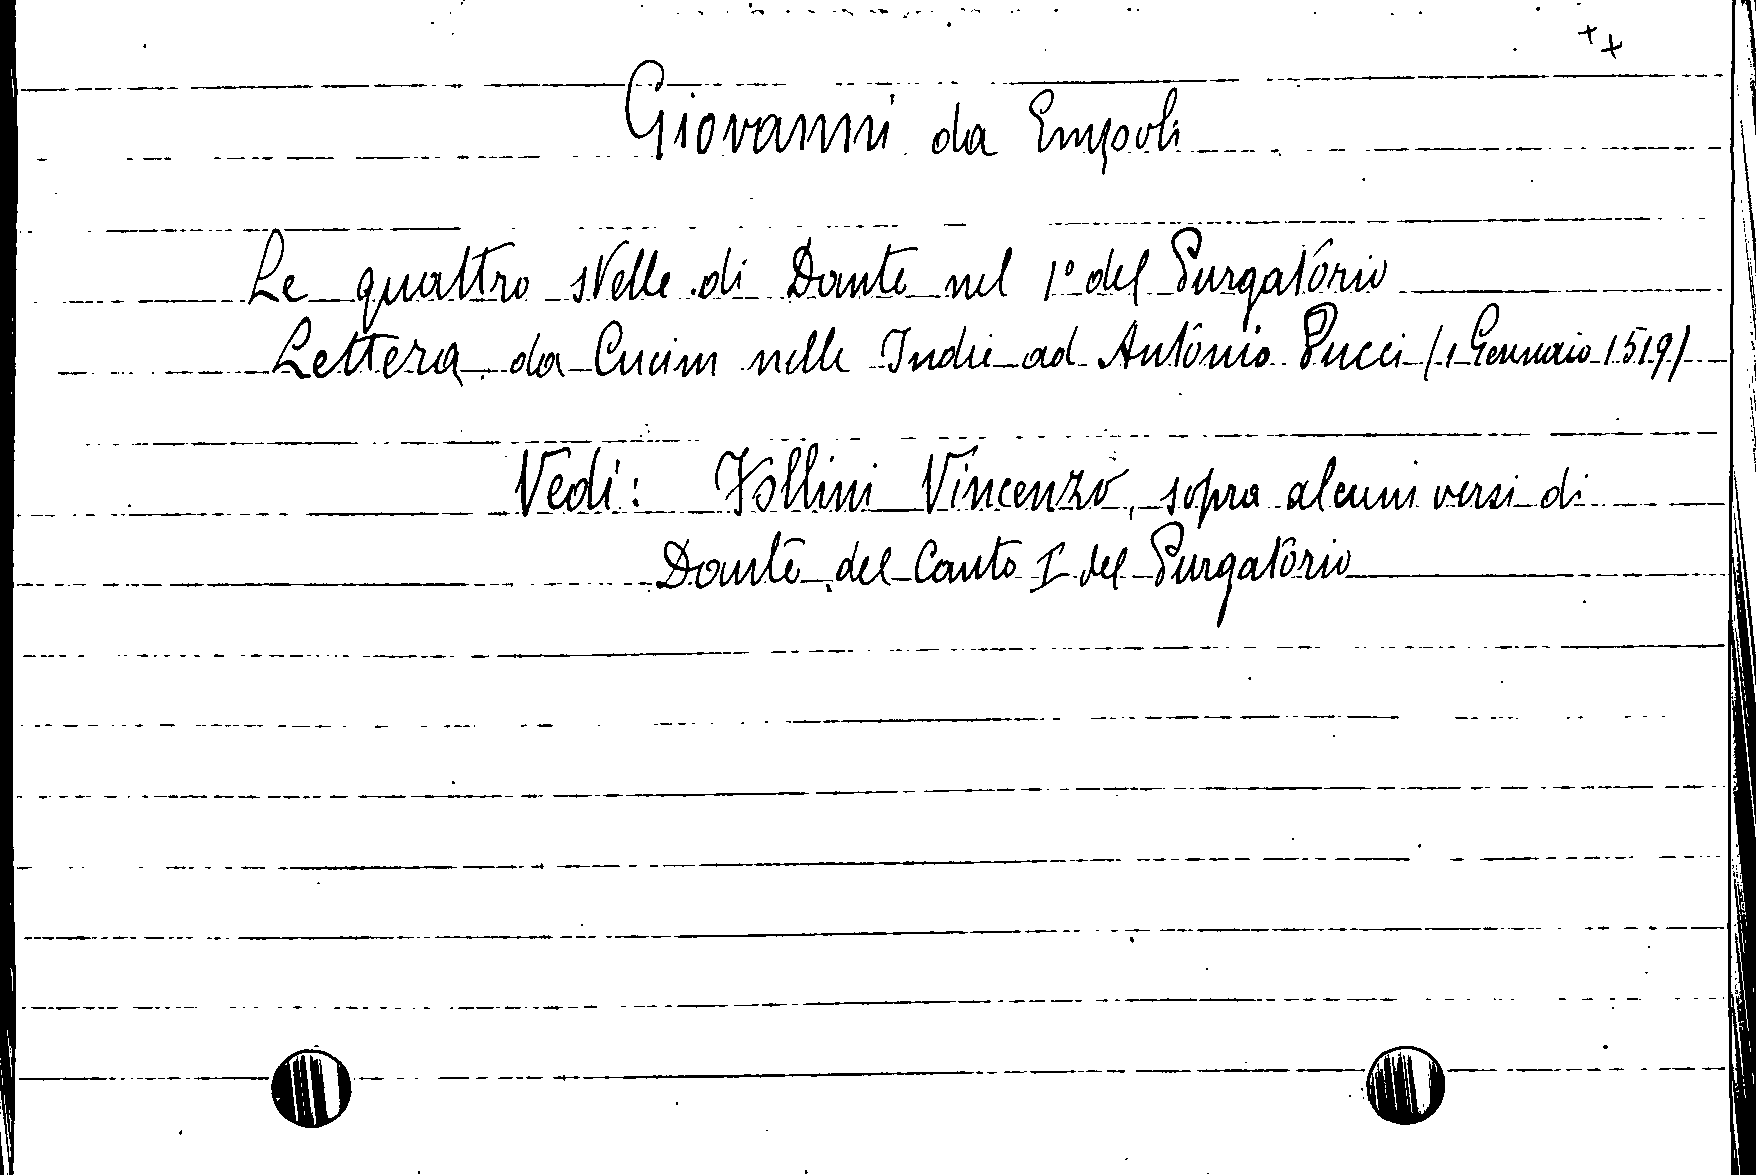 ++
Giovanni da Empoli
Le quattro stelle di Dante nel 1º del Purgatorio
Lettera da Cucim nelle Indie ad Antonio Pucci (1 Gennaio 1519)
Vedi: Follini Vincenzo, sopra alcuni versi di
Dante del Canto I del Purgatorio